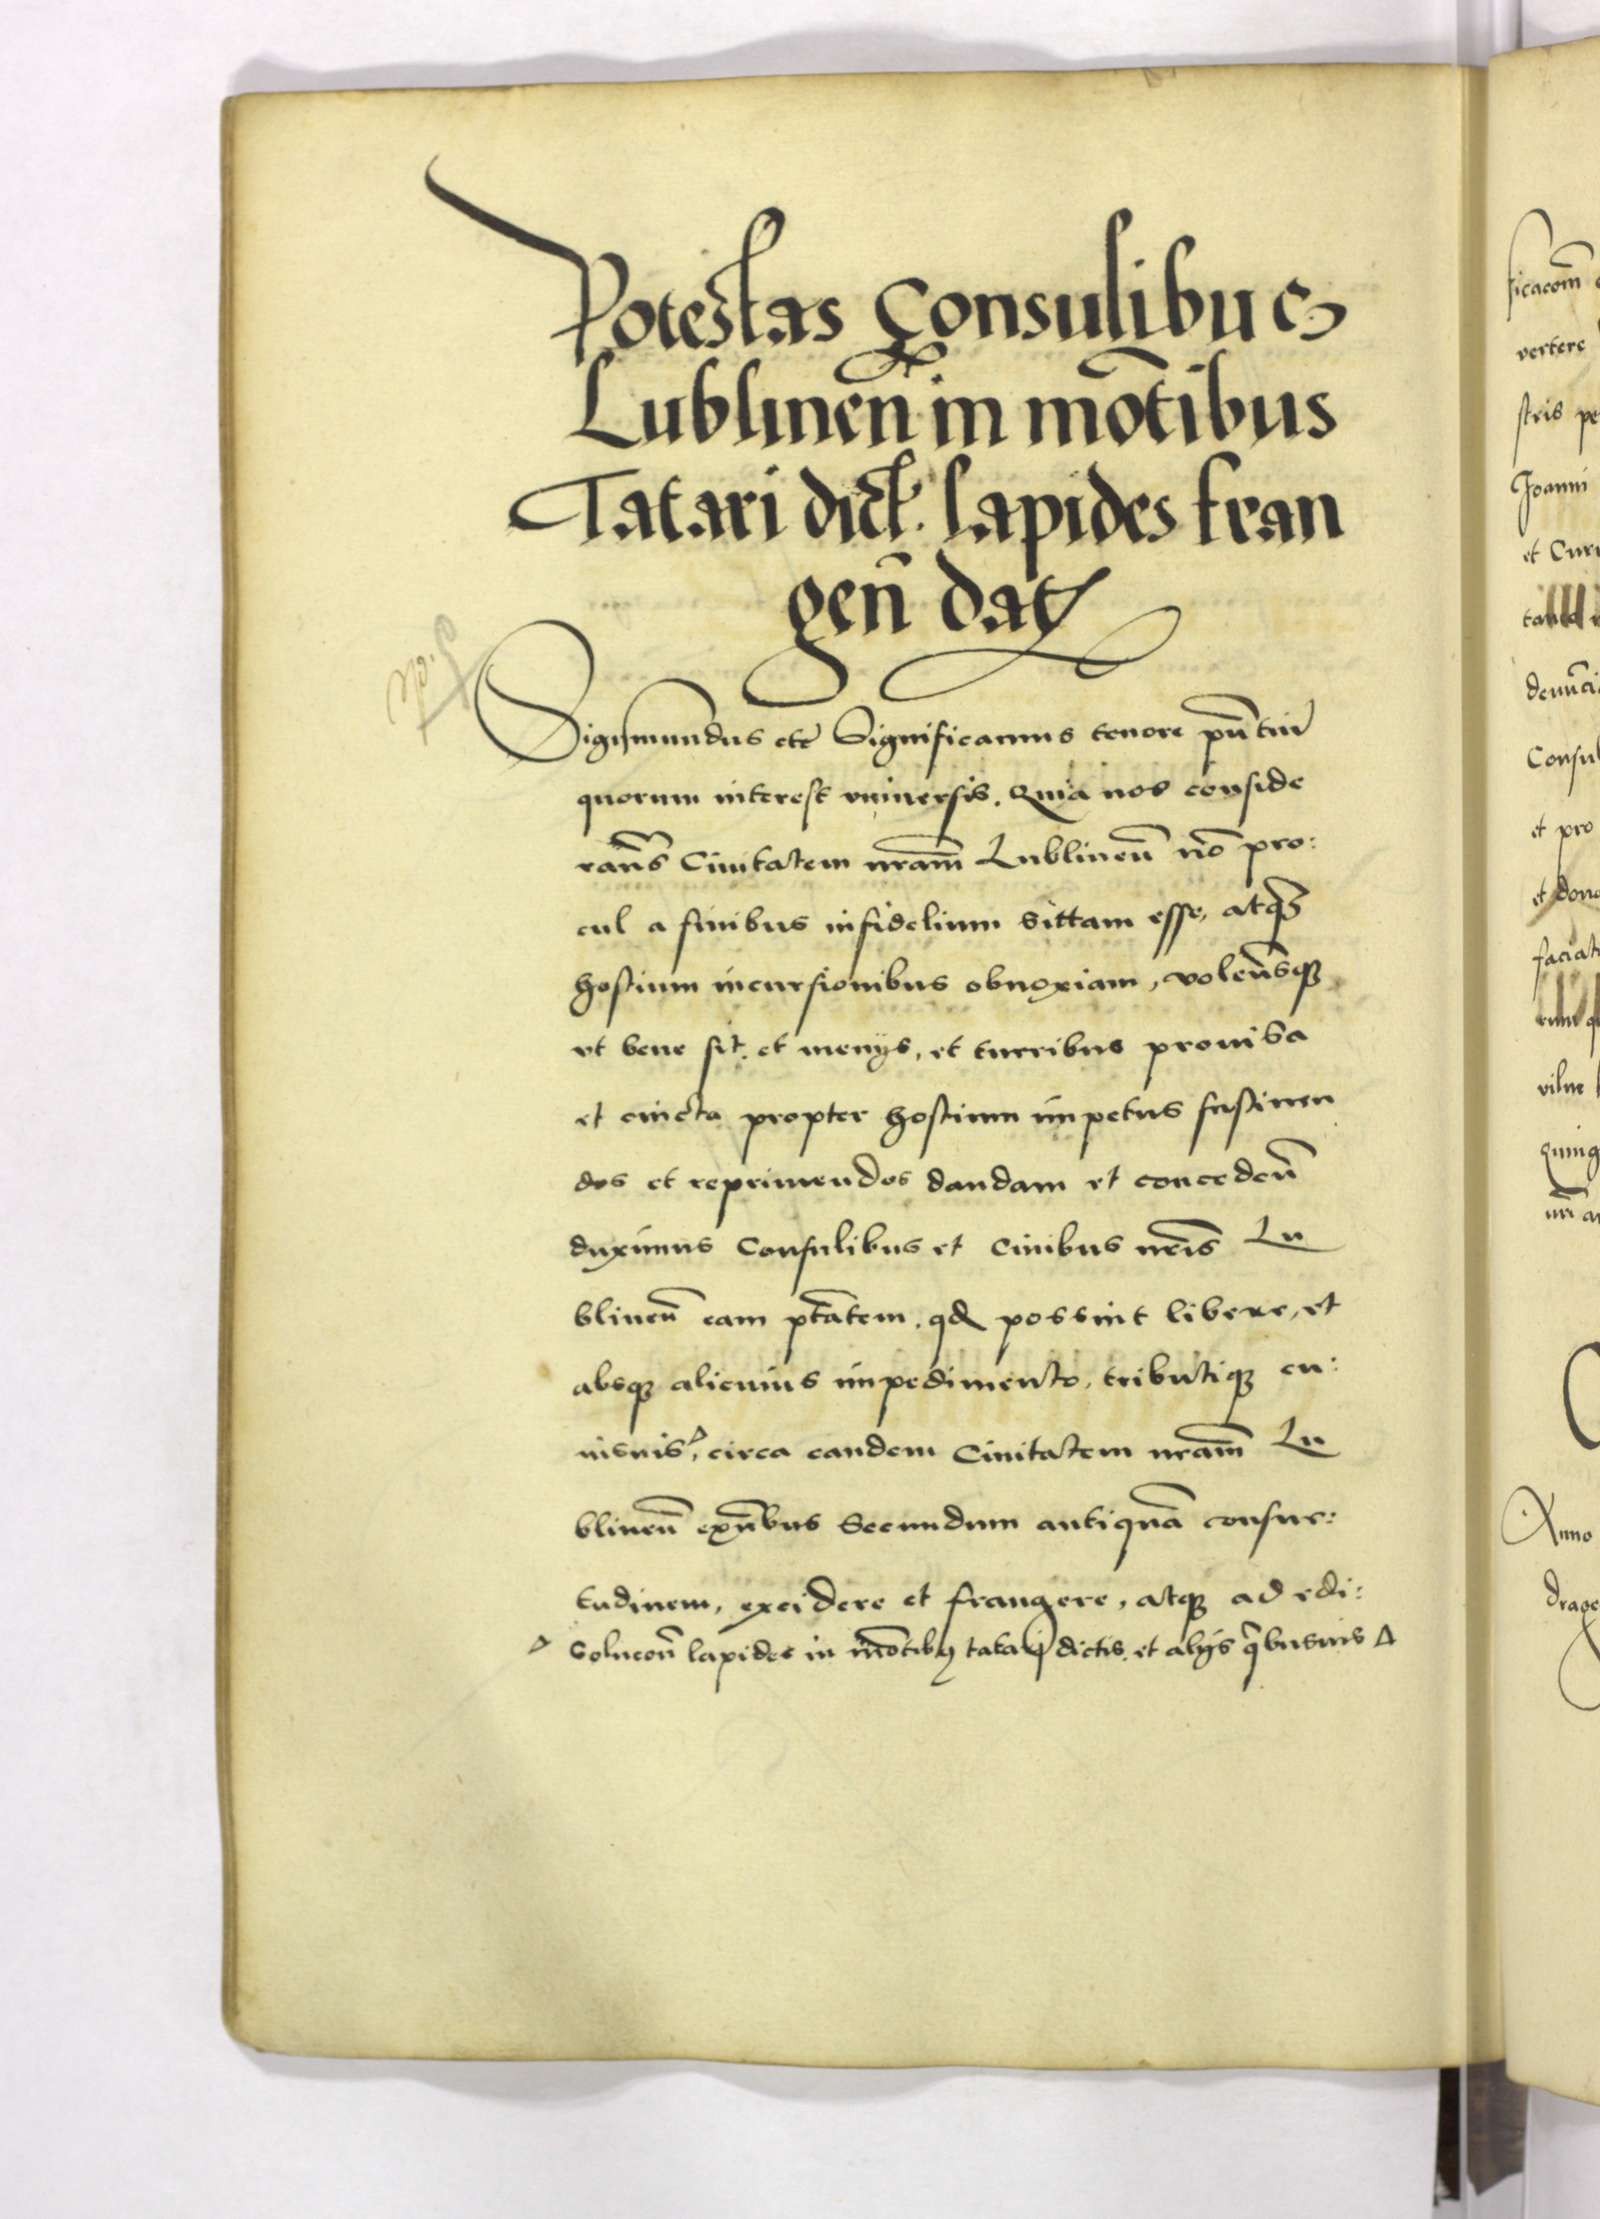 Potestas Consulibus
Lublinen̄ in mōtibus
Tatari dict. lapides fran
gen̄ dat
Sigismundus etc̄ Significamus tenore pn̄tiū
quorum interest vniuersis. Quia nos conside
ran̄s Ciuitatem nr̄am Lublinen̄ nō pro:
cul a finibus infidelium sittam esse, atq3
hostium incursionibus obnoxiam, volen̄sq3
vt bene sit. et menijs, et turribus prouisa
et cincta propter hostium impetus sustinen
dos et reprimendos dandam et conceden̄
duximus Consulibus et Ciuibus nr̄is Lu
blinen̄ eam ptātem. qd possint libere, et
absq3 alicuius impedimento, tributiq3 cu:
iusuis, circa eandem Ciuitatem nr̄am Lu
blinen̄ exn̄bus Secundum antiquā consue:
tudinem, excidere et frangere, atq3 ad edi:
Δ Solucon̄ lapides in mōtibus tatari dictis. et alijs qibusuis Δ
ficacom̄
vertere
stris pe
Joanni
et Curi
denūci
Consul
et pro
et dona
faciat
vilne
Quing
Anno